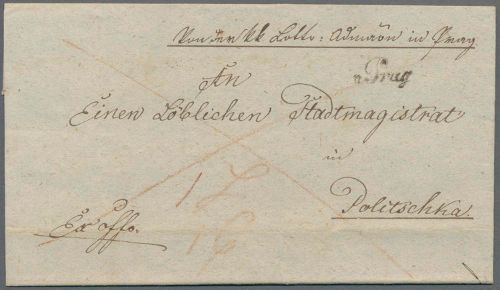 Von der kk Lotto: Admāōn in Prag
v Prag
An
Einen Löblichen Stadtmagistrat
in
Politschka.
Ex offo.